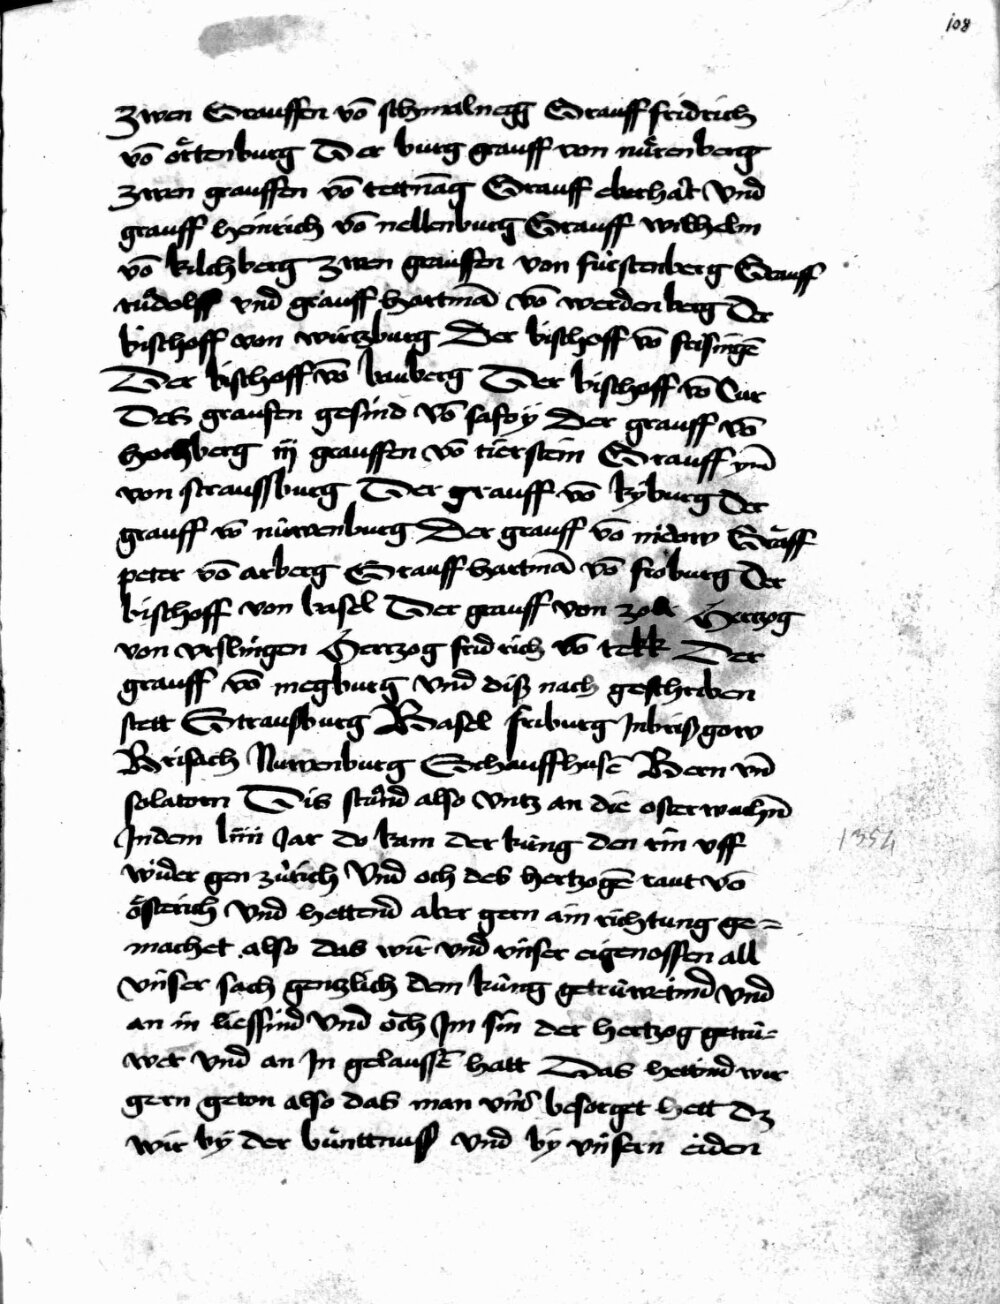 108
zwen Grauffen vō schmalnegg Grauff fridrich
vō oͤrttenburg Der burg grauff von nuͤrenberg
zwen grauffen vō tettnāg Grauff eberhart vnd
grauff heinrich vō nellenburg Grauff wilhelm
vō kilchberg zwen grauffen von fuͤrstenberg Grauff
ruͦdolff vnd grauff hartmā vō werdenberg der
bischoff von wirtzburg Der bischoff vō frisingē
Der bischoff vō bauberg Der bischoff vō Cur
Des graufen gesind vō safoy der grauff vō
hochberg iij grauffen vō tierstein Grauff ym̄
von straussburg Der grauff vō kyburg der
grauff vō nuͤwenburg Der grauff vō nidow Grāff
peter vō arberg Grauff hartmā vō froburg der
bischoff von basel Der grauff von zolr Hertzog
von vrslingen Hertzog fridrich vō tekk Der
grauff vō megburg vnd diß nach geschriben
stett Strausburg Basel friburg Inbrisgow
Brisach Nuwenburg Schauffhusē Bern vnd
solatorn Dis stuͦnd also vntz an die osterwuchē
Indem liiii Jar do kam der kuͤng den rin vff
wider gen zuͤrich Vnd och des hertzogē raut vō
oͤsterich vnd hettend aber gern ain richtung ge=
machet also das wir vnd vnser eigenossen all
vnser sach gentzlich dem kuͤng getruͤwetind vnd
an in liessind vnd och Im sin der hertzog getruͤ=
wet vnd an In gelaussē hatt Das hettind wir
gern geton also das man vnd besorget hett dz
wir by der buͤnttnuss vnd by vnsern eiden
1354